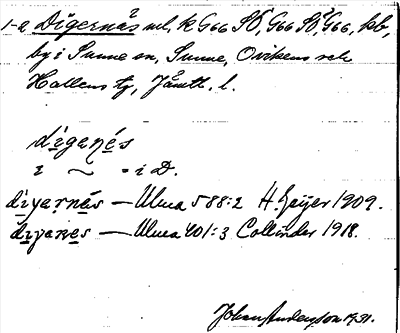 1-2 Digernäs ml, k G66 SÖ, G66 SÖ, G66, pb,
by i Sunne sn, Sunne, Ovikens och
Hallens tg, Jämtl. l.
digaṇés
i ~ - i D.
diyarnäs — Ulma 588:2 H. Geijer 1909.
diyanes — Ulma 401:3 Collinder 1918.
Johan Andersson 1931.